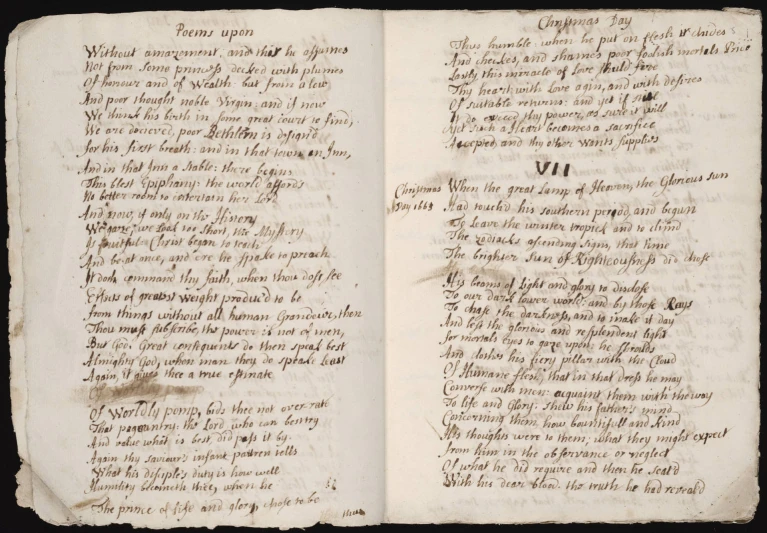 Poems upon
Without amazement, and that he assumes
Not from some princess decked with plumes
Of honour and of Wealth but from a low
And poor thought noble Virgin: and if now
We think his birth in some great court to find,
We are decieved, poor Bethlem is design'd
for his first breath: and in that town an Inn,
And in that Inn a stable: there begins
This blest Epiphany: the world affords
No better room to entertain her Lord
And now, if only on this History
We gaze, we look too short, the Mystery
As fruitful Christ began to teach
And be at once, and ere he spake to preach
It doth command thy faith, when thou dost see
Effects of greatest weight produc'd to be
from things without all human Grandeur, then
Thou must subscribe, the power is not of men,
But God. Great consequents do then speak best
Almighty God, when man they do speake Least
Again, it gives thee a true estimate
Of Worldly pomp, bids thee not over rate
That pageantry: the Lord who can
And value what is best, did pass it by.
Again thy saviour's infant pattern tells
What his disciples duty is how well
Humility becometh thee, when he
The prince of life and glory, chose to be
thus
Christmas Day
Thus humble: when he put on flesh it
And checkes, and shames poor foolish mortals Pride
Lastly this miracle of Love should fire
Thy heart with Love agin, and with desires
Of suitable returns: and yet if still
It do exceed thy power, as sure it will
Yet such a Heart becomes a sacrifice
Accepted, and thy other wants supplies
VII
Christmas Day 1665
When the great Lamp of Heaven, the Glorious sun
Had touch'd his southern period, and begun
To Leave the winter tropick and to climb
The zodiacks ascending signs, that time
The brighter Sun of Righteousness did chose
His beams of Light and glory to disclose
To our dark lower world: and by those Rays
To chase the darkness, and to make it day
And lest the glorious and resplendent light
for mortals eyes to gaze upon: he shrouds
And clothes his fiery pillar with the Cloud
Of Humane flesh; that in that dress he may
Converse with men: acquaint them with the way
To life and Glory: shew his father's mind
Concerning them, how bountifull and kind
His thoughts were to them, what they might expect
from him in the observance or neglect
Of what he did require and then he seal'd
With his dear blood the truth he had reveal'd